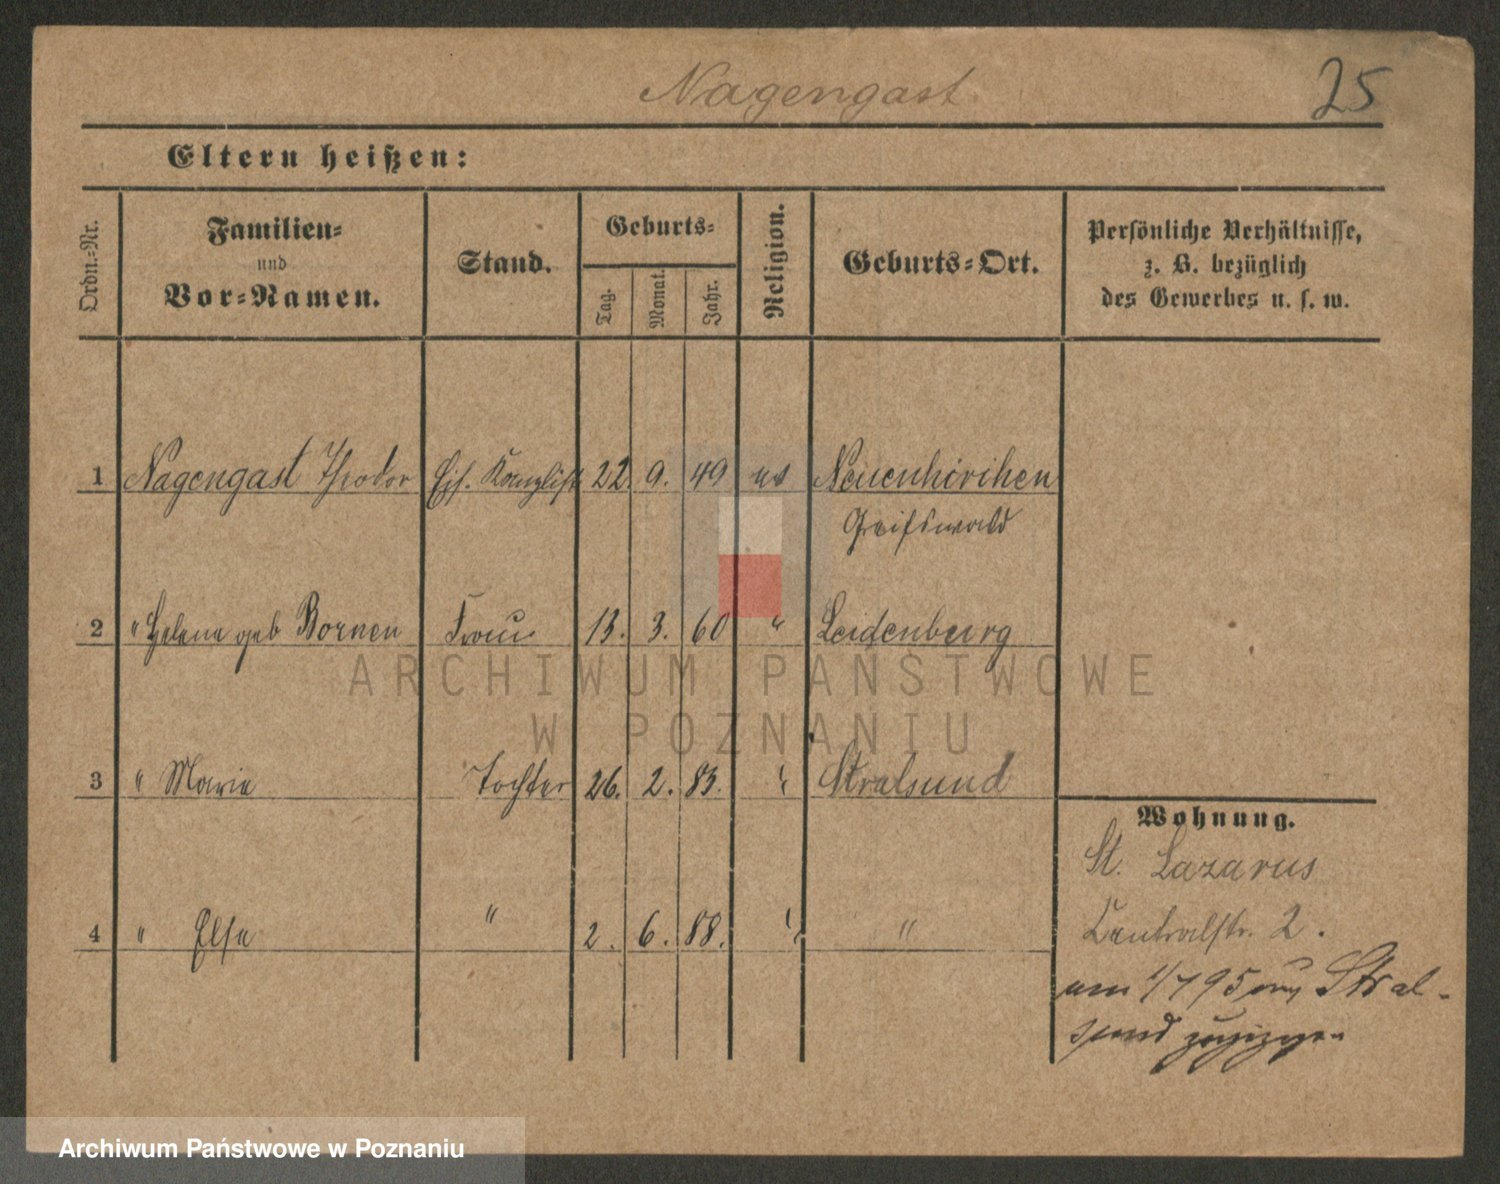 Nagengast
25
Eltern heißen:
Ordn.-Nr.
Familien-
und
Vor-Namen.
Stand.
Geburts-
Tag.
Monat.
Jahr.
Religion.
Geburts-Ort.
Persönliche Verhältnisse,
z. B. bezüglich
des Gewerbes u. s. w.
1 Nagengast Theodor Eis. Kanzlist 22. 9. 49 Neuenkirchen
Greifswald
2 " Helene geb Bornen Frau 13. 3. 60 "
3 " Marie Tochter 26. 2. 83. " Stralsund
4 " Else " 2. 6. 88. " "
Wohnung.
St. Lazarus
Centralstr. 2.
am 1/7 95 Stral-
sund
ARCHIWUM PAŃSTWOWE
W POZNANIU
Archiwum Państwowe w Poznaniu